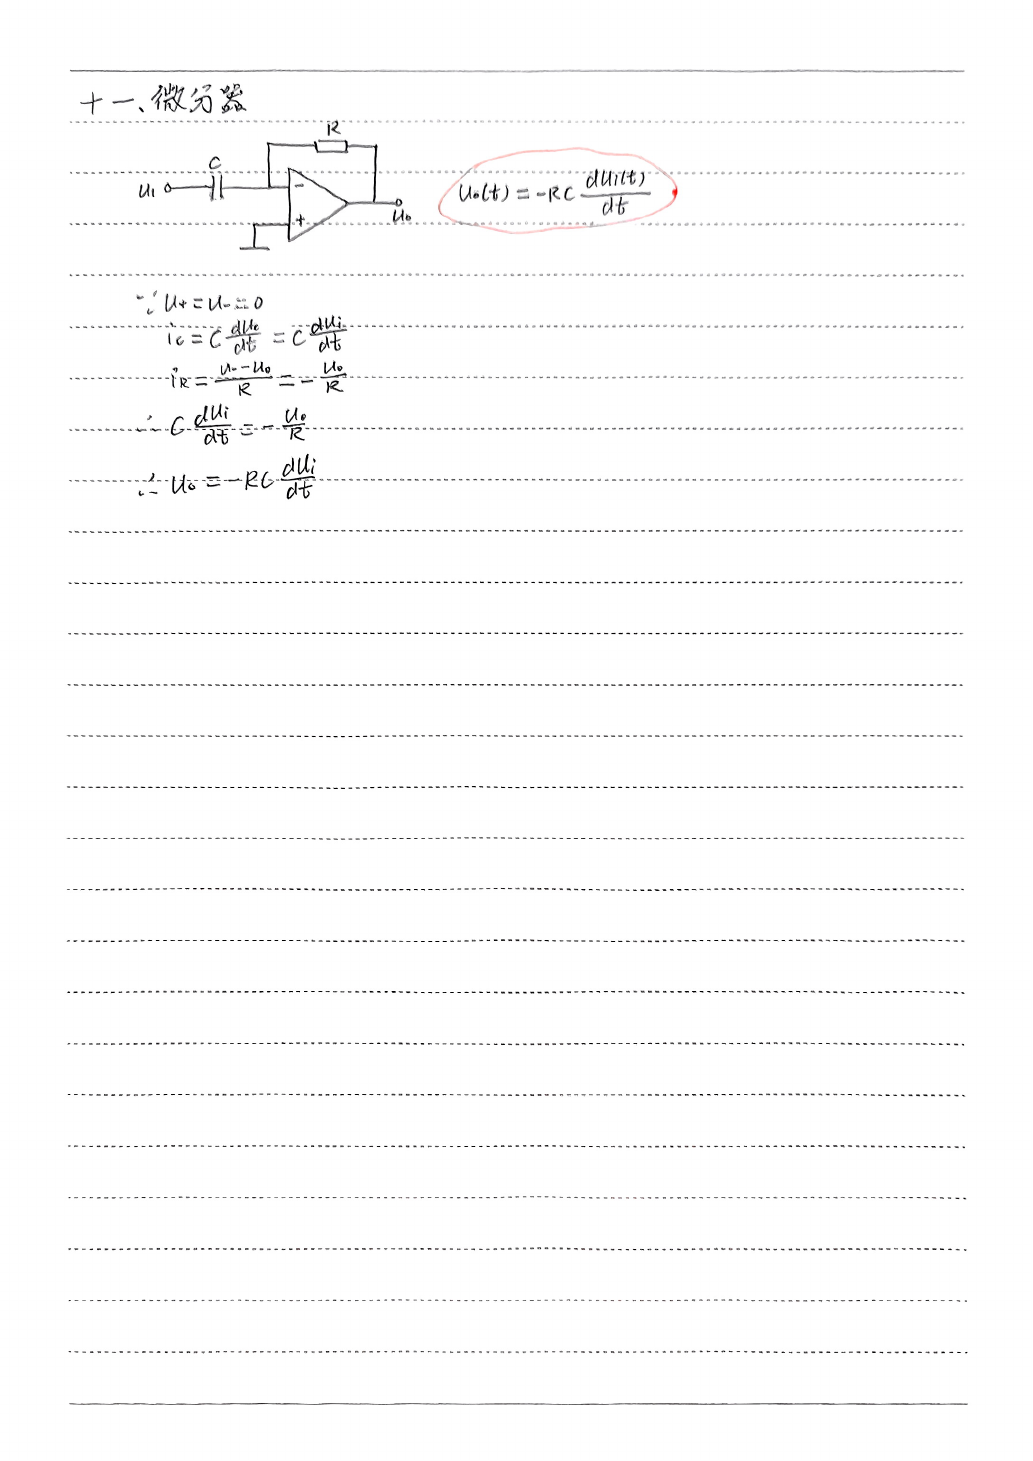 十一、微分器
R
C
u₁
-
+
u₀
u₀(t) = -RC du₁(t)/dt
∵ u₊ = u₋ = 0
i_c = C du_c/dt = C du_i/dt
i_R = (u₋ - u₀)/R = - u₀/R
∴ C du_i/dt = - u₀/R
∴ u₀ = -RC du_i/dt